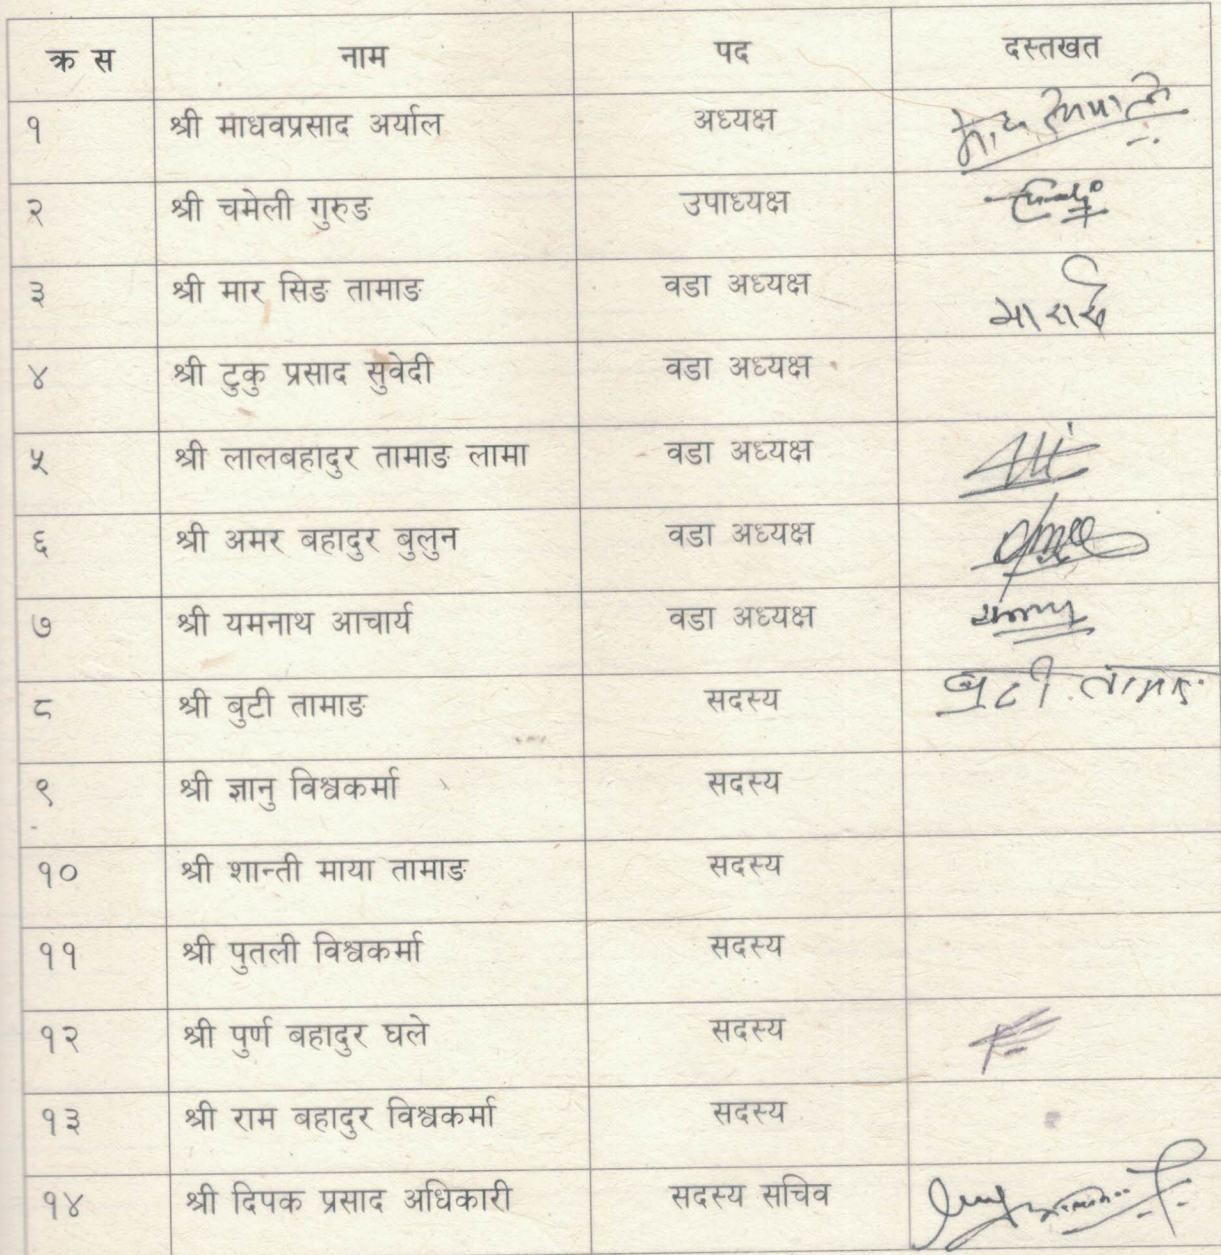 क्र स नाम पद दस्तखत
१ श्री माधवप्रसाद अर्याल अध्यक्ष
२ श्री चमेली गुरुङ उपाध्यक्ष
३ श्री मार सिङ तामाङ वडा अध्यक्ष
४ श्री टुकु प्रसाद सुवेदी वडा अध्यक्ष
५ श्री लालबहादुर तामाङ लामा वडा अध्यक्ष
६ श्री अमर बहादुर बुलुन वडा अध्यक्ष
७ श्री यमनाथ आचार्य वडा अध्यक्ष
८ श्री बुटी तामाङ सदस्य बुटी तामाङ
९ श्री ज्ञानु विश्वकर्मा सदस्य
१० श्री शान्ती माया तामाङ सदस्य
११ श्री पुतली विश्वकर्मा सदस्य
१२ श्री पुर्ण बहादुर घले सदस्य
१३ श्री राम बहादुर विश्वकर्मा सदस्य
१४ श्री दिपक प्रसाद अधिकारी सदस्य सचिव